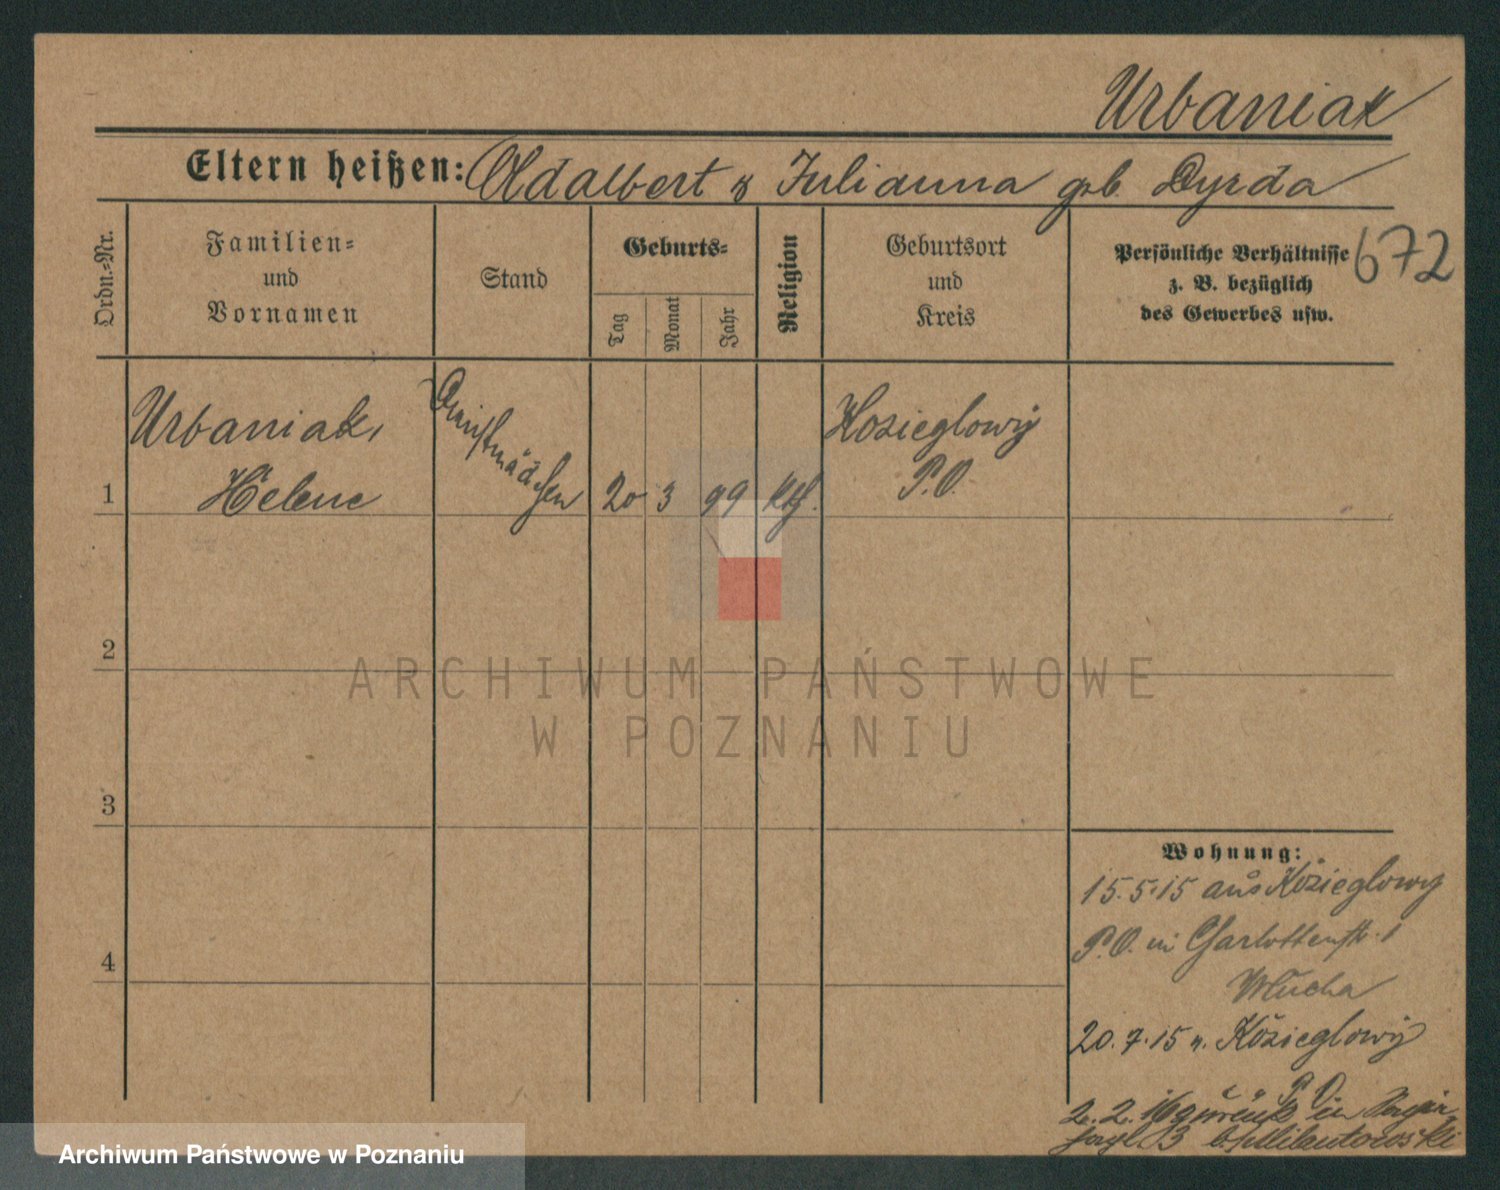 Urbaniak
Eltern heißen: Adalbert & Julianna geb. Dyrda
Ordn.-Nr.
Familien-
und
Vornamen
Stand
Geburts-
Tag
Monat
Jahr
Religion
Geburtsort
und
Kreis
Persönliche Verhältnisse
z. B. bezüglich
des Gewerbes usw.
672
1
Urbaniak,
Helene
Dienstmädchen
20
3
99
kth.
Kozieglowÿ
P.O.
2
ARCHIWUM PAŃSTWOWE
W POZNANIU
3
4
Wohnung:
15.5.15 aus Kozieglowy
P.O. in Charlottenstr. 1
Mucha
20.7.15 n. Kozieglowÿ
P O
2.2.16 zurück in
3 b/
Archiwum Państwowe w Poznaniu